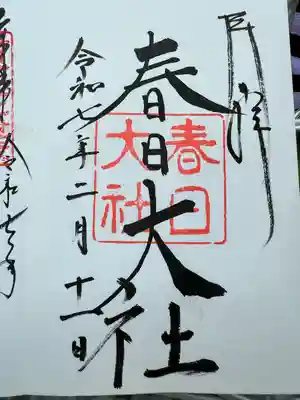 奉拝
春日大社
春日
大社
令和七年二月十一日
令和七年